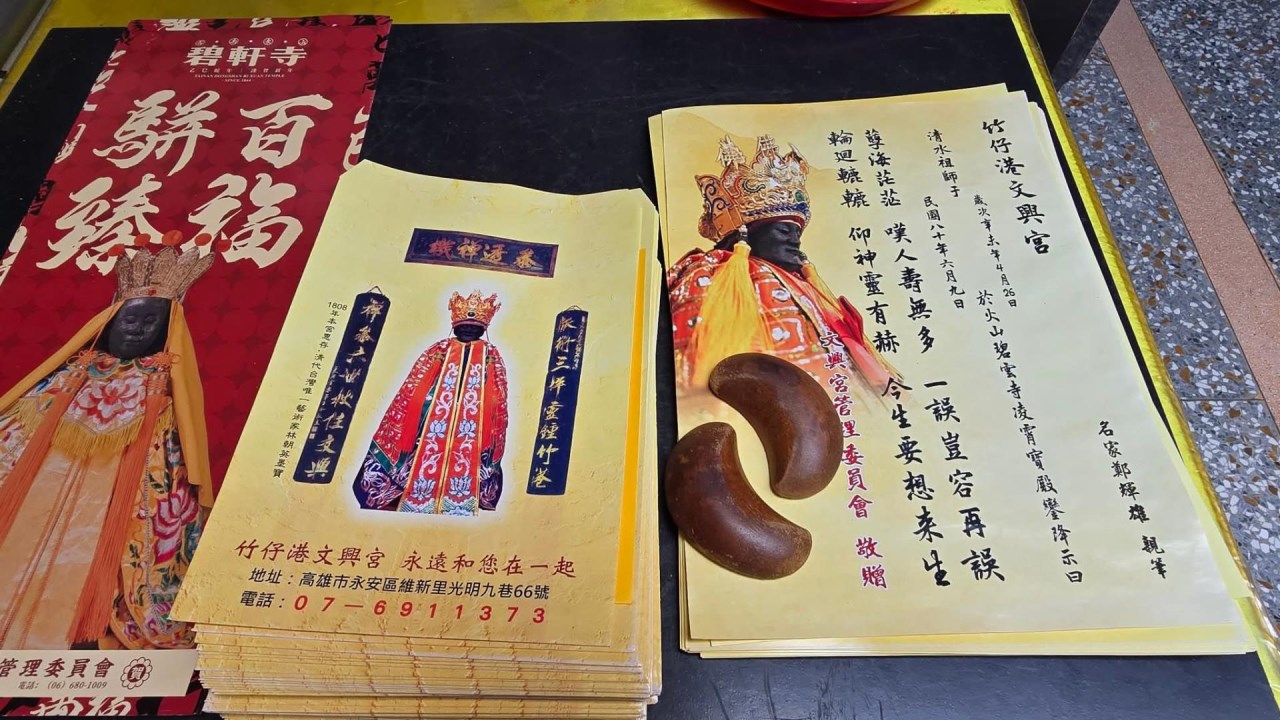 碧軒寺
TAINAN DONGSHAN BI XUAN TEMPLE
百福
駢臻
管理委員會
電話：(06) 680-1009
賀
參透禪機
派衍三坪靈鍾竹港
禪參六世 文興
1808年本宮 存，清代台灣唯一藝術家林朝英墨寶
竹仔港文興宮 永遠和您在一起
地址：高雄市永安區維新里光明九巷66號
電話：07－6911373
竹仔港文興宮
歲次辛未年4月26日 於火山碧雲寺凌霄寶殿鑾降示曰
清水祖師于 民國八十年六月九日
孽海茫茫 嘆人壽無多 一誤豈容再誤
輪迴轆轆 仰神靈有赫 今生要想來生
名家鄭輝雄 親筆
文興宮管理委員會 敬贈